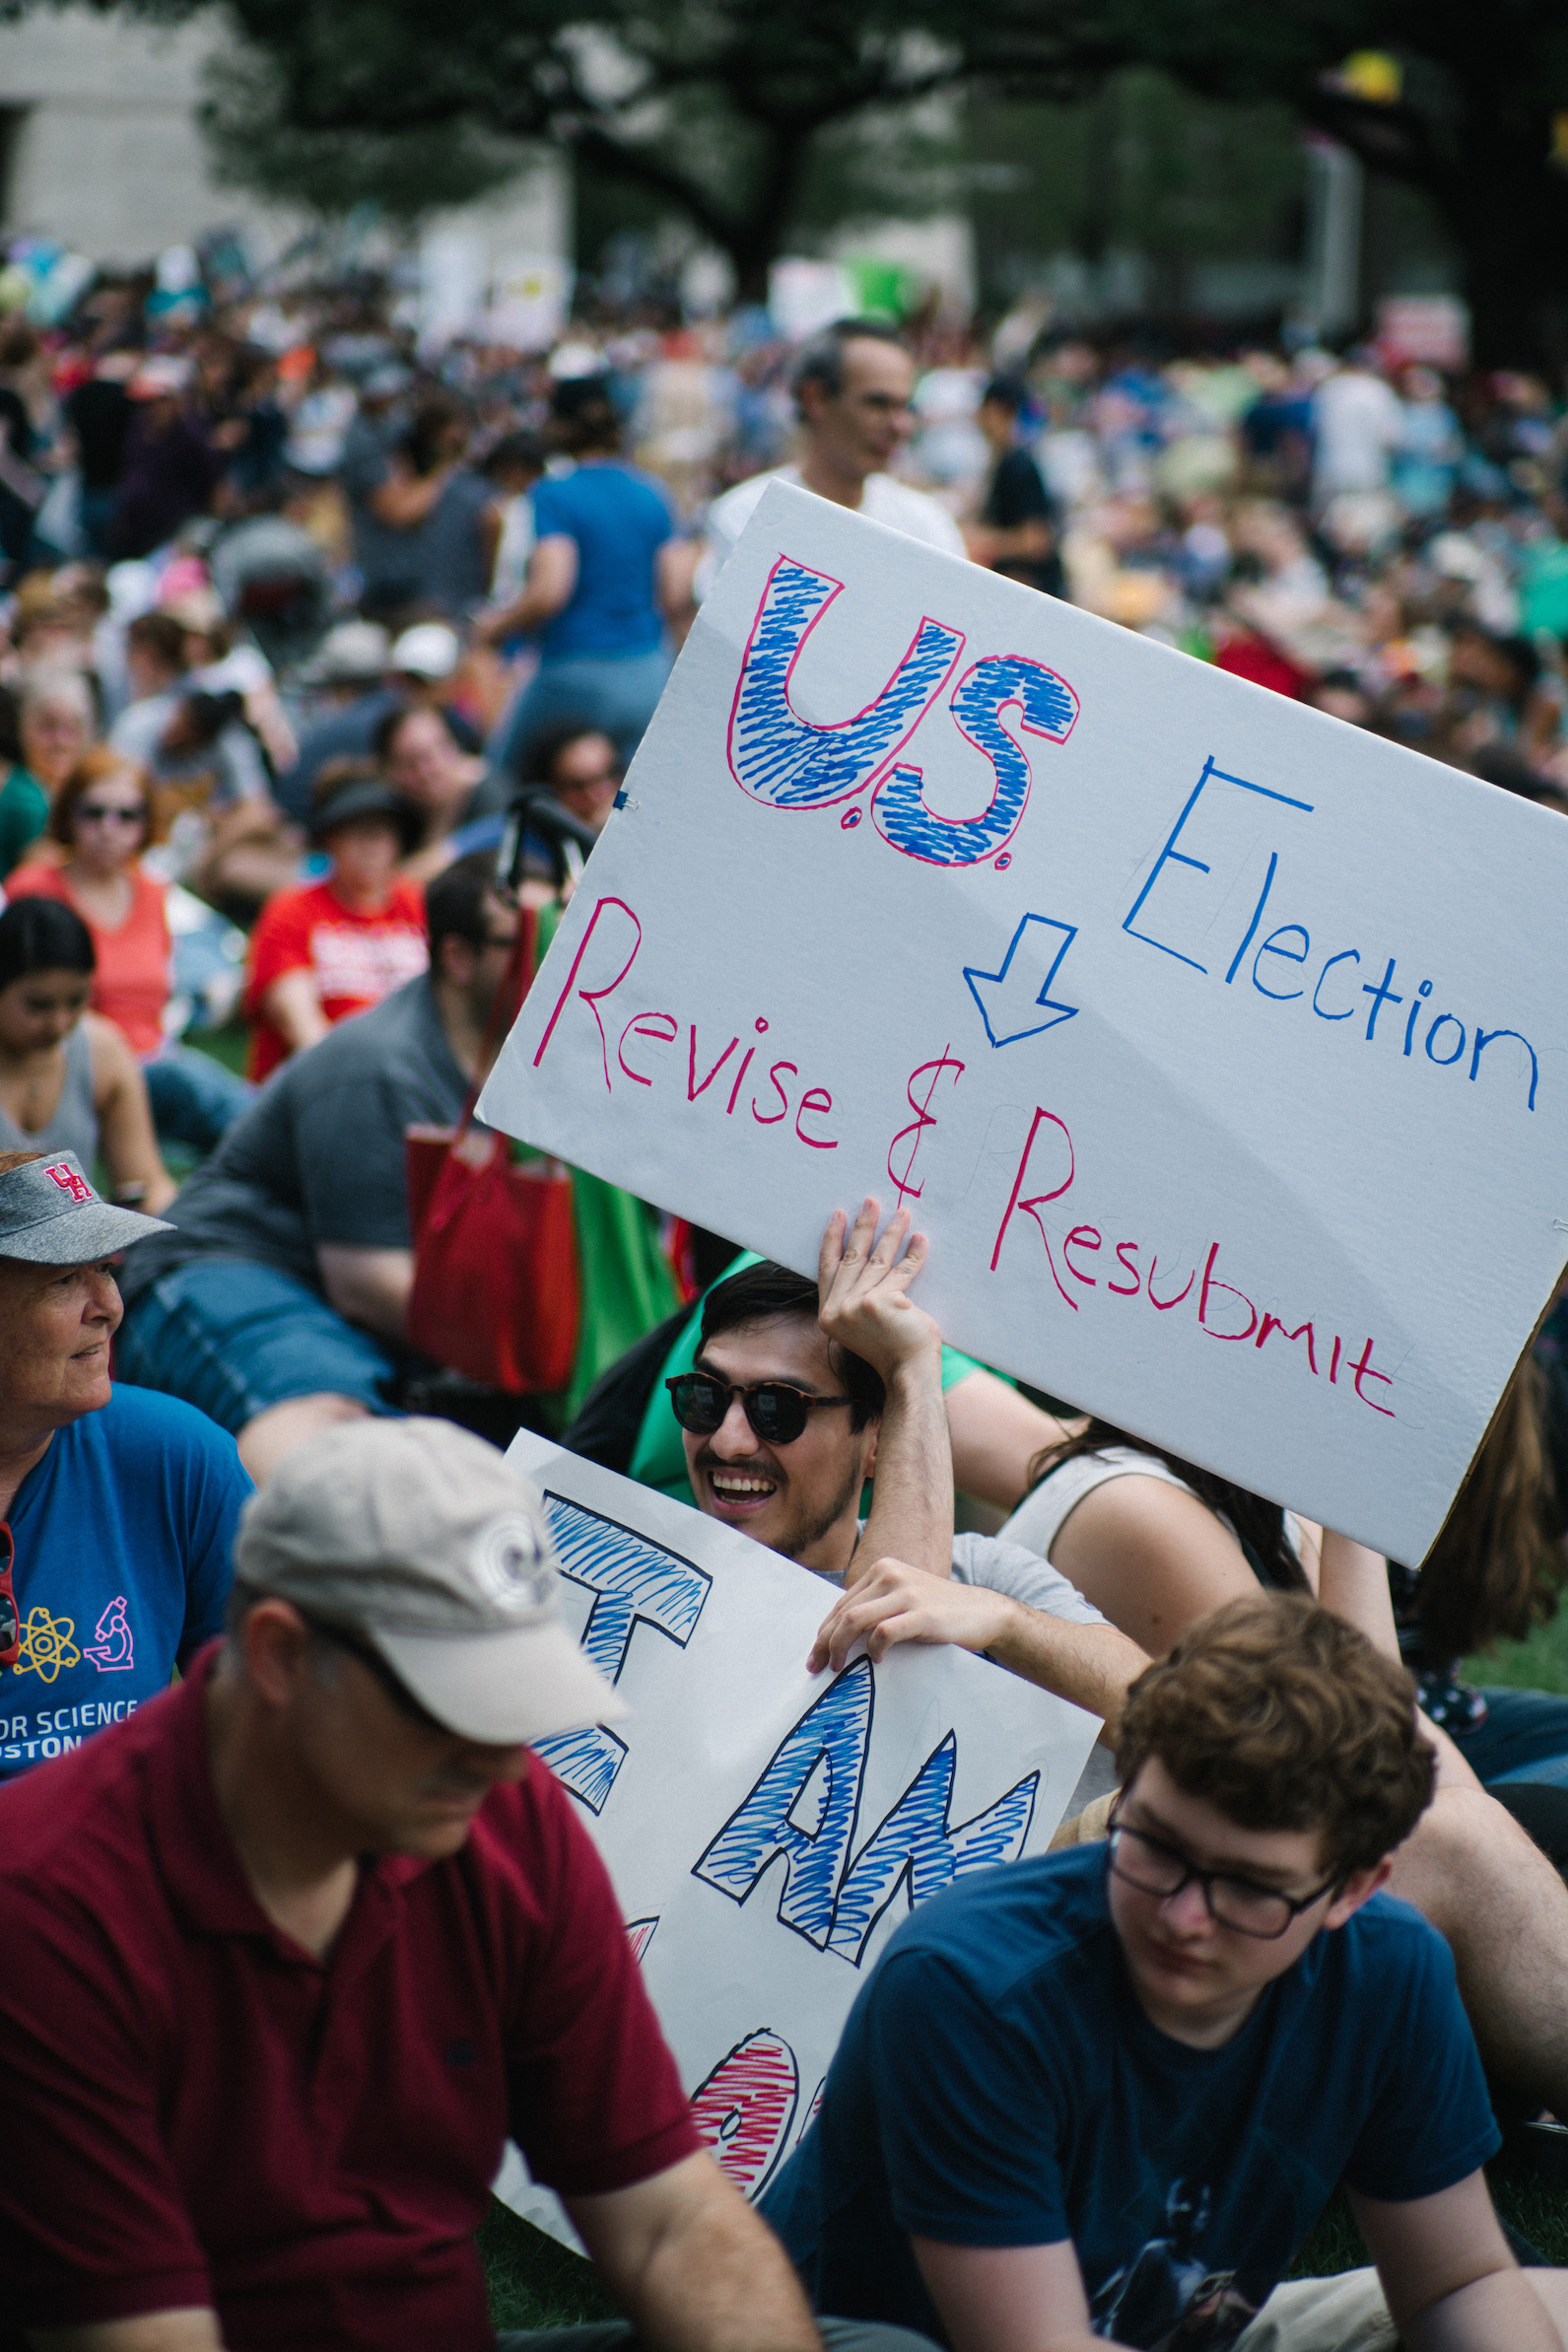 U.S. Election
Revise & Resubmit
UH
I AM
OR SCIENCE
STON